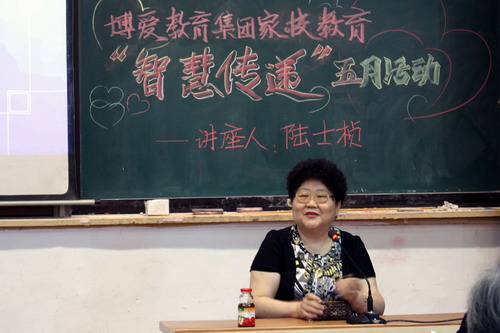 博爱教育集团家校教育
“智慧传递”五月活动
——讲座人：陆士桢